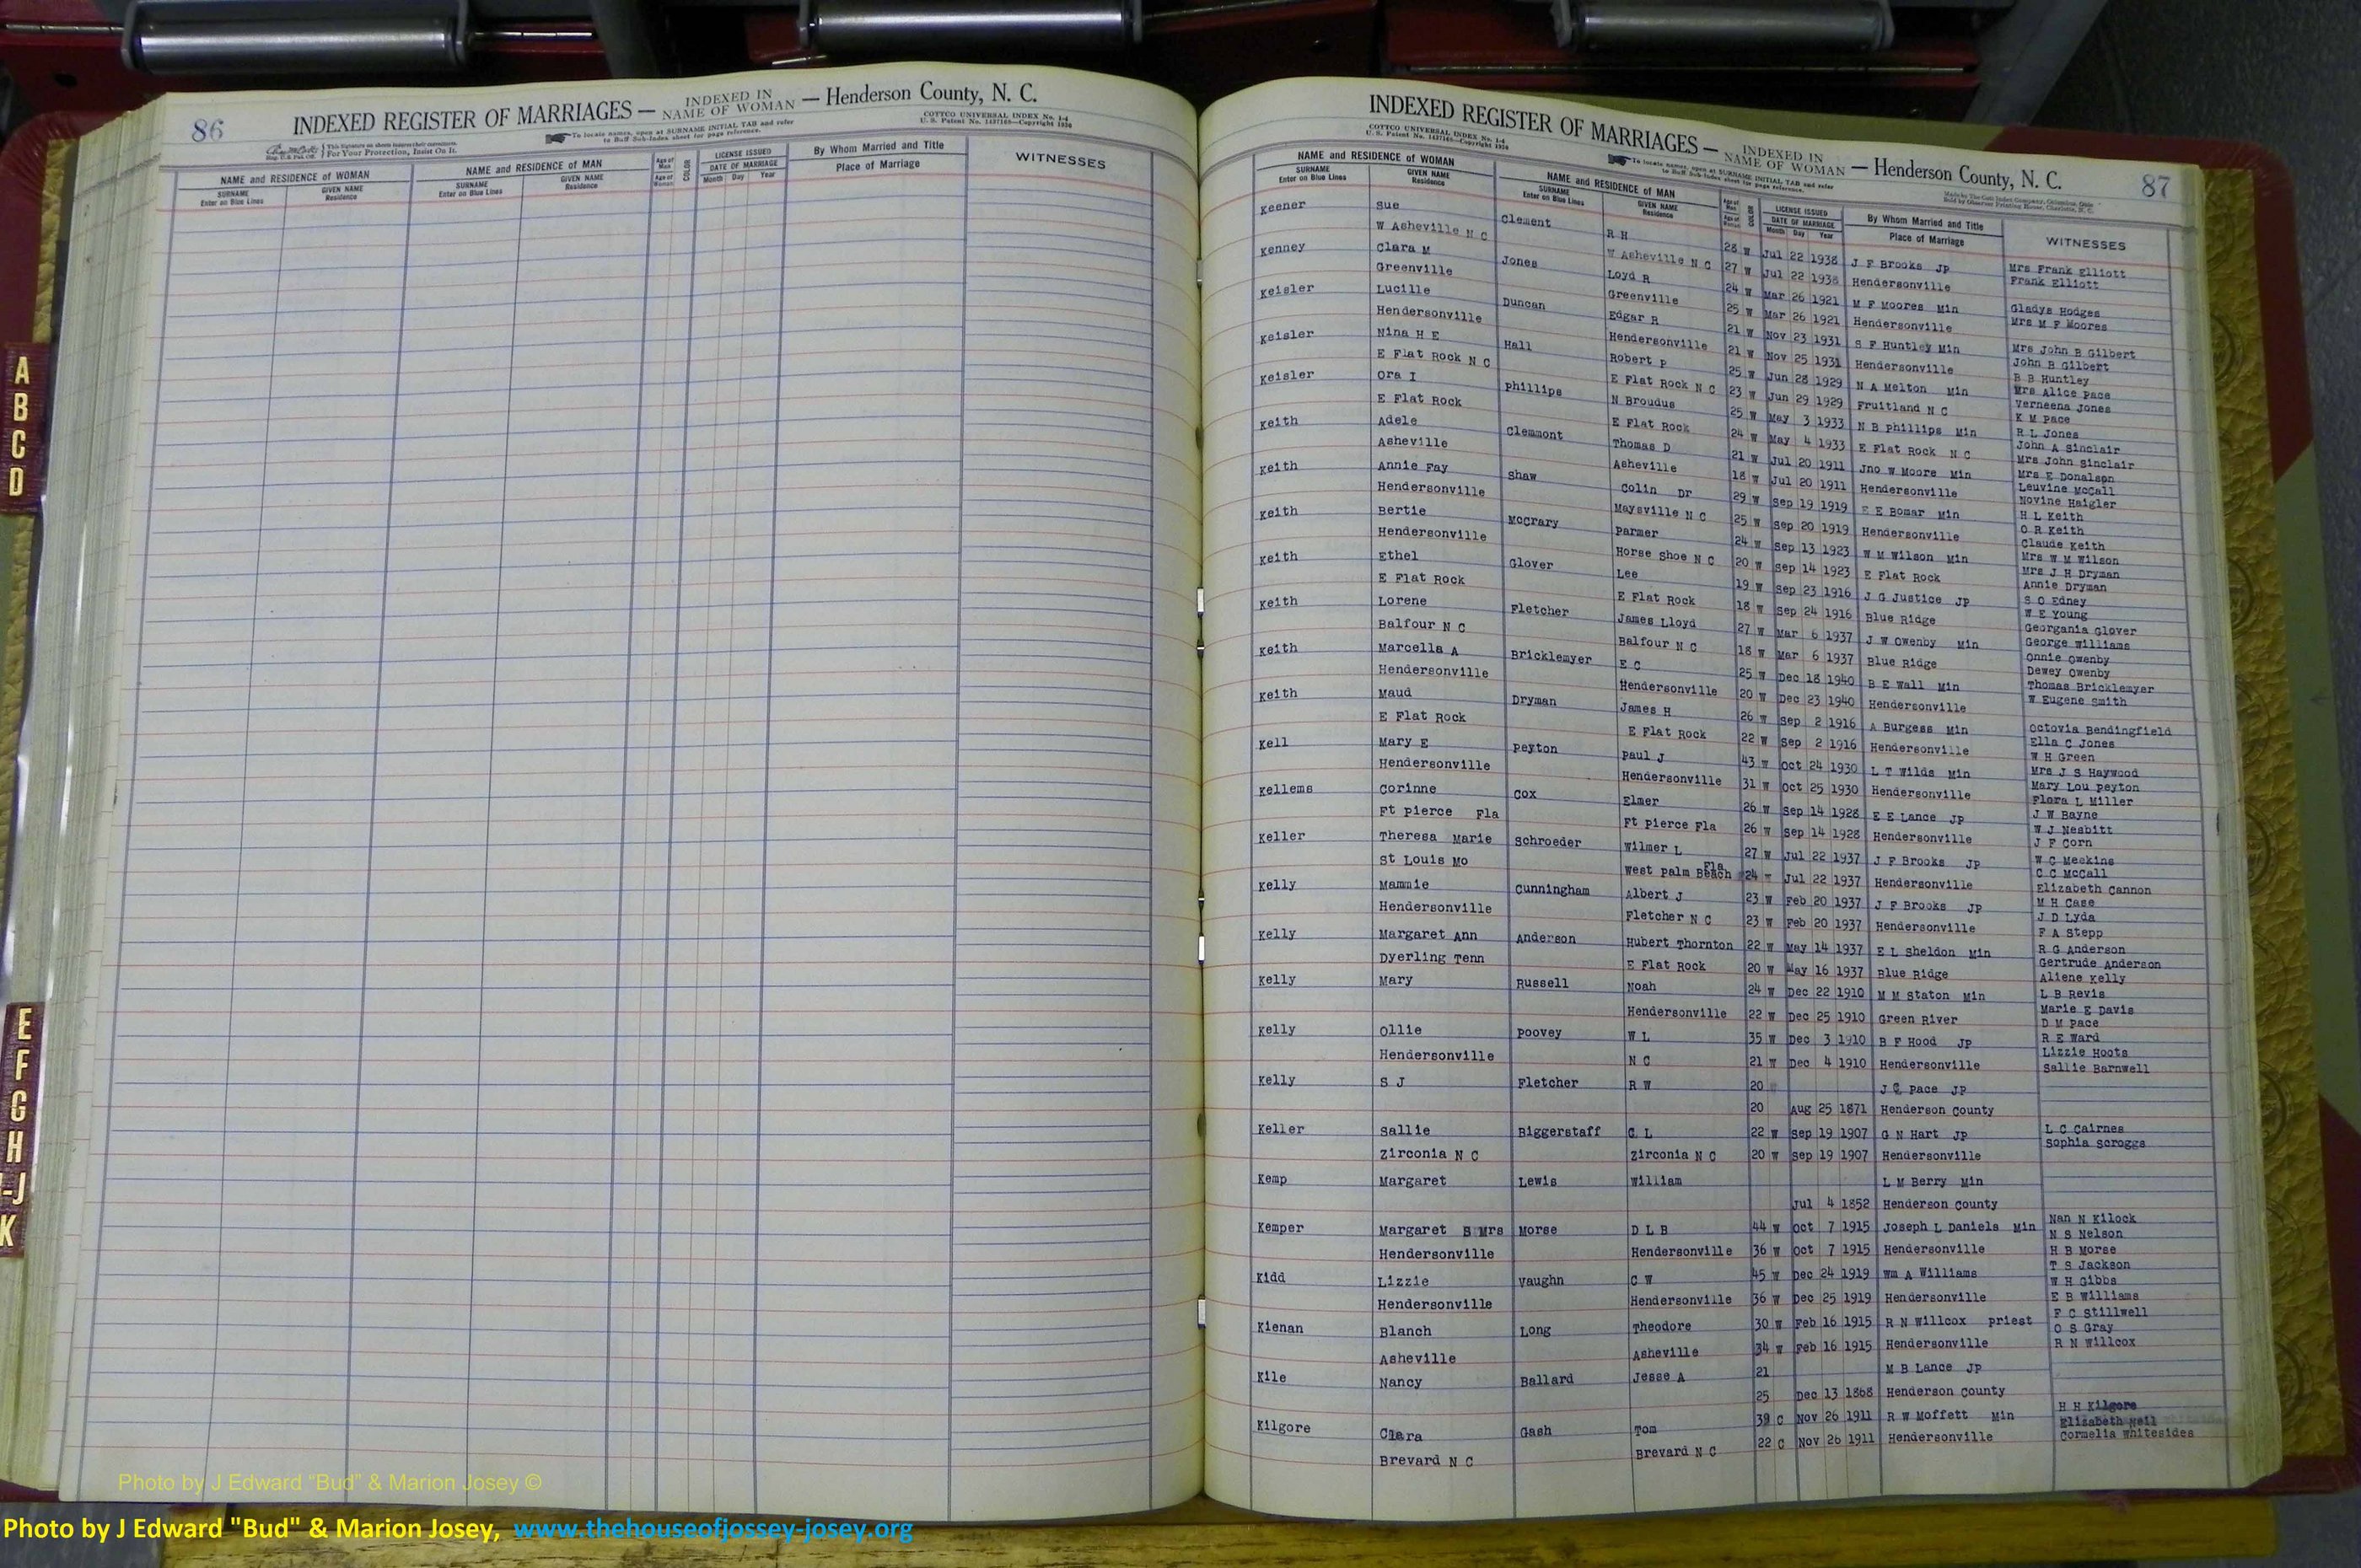 86
INDEXED REGISTER OF MARRIAGES — INDEXED IN NAME OF WOMAN — Henderson County, N. C.
To locate names, open at SURNAME INITIAL TAB and refer
to Buff Sub-Index sheet for page reference.
COTTCO UNIVERSAL INDEX No. 1-4
U. S. Patent No. 1437169—Copyright 1936
For Your Protection, Insist On It.
NAME and RESIDENCE of WOMAN
SURNAME
Enter on Blue Lines
GIVEN NAME
Residence
NAME and RESIDENCE OF MAN
SURNAME
Enter on Blue Lines
GIVEN NAME
Residence
Age of Man
Age of Woman
COLOR
LICENSE ISSUED
DATE OF MARRIAGE
Month Day Year
By Whom Married and Title
Place of Marriage
WITNESSES
INDEXED REGISTER OF MARRIAGES — INDEXED IN NAME OF WOMAN — Henderson County, N. C.
87
COTTCO UNIVERSAL INDEX No. 1-4
To locate names, open at SURNAME INITIAL TAB and refer
to Buff Sub-Index sheet for page reference.
NAME and RESIDENCE OF WOMAN
SURNAME
Enter on Blue Lines
GIVEN NAME
Residence
NAME and RESIDENCE OF MAN
SURNAME
Enter on Blue Lines
GIVEN NAME
Residence
Age of Man
Age of Woman
COLOR
LICENSE ISSUED
DATE OF MARRIAGE
Month Day Year
By Whom Married and Title
Place of Marriage
WITNESSES
Keener Sue Clement R H 28 W Jul 22 1938 J F Brooks JP Mrs Frank Elliott
W Asheville N C W Asheville N C 27 W Jul 22 1938 Hendersonville Frank Elliott
Kenney Clara M Jones Loyd R 24 W Mar 26 1921 M F Moores Min Gladys Hodges
Greenville Greenville 25 W Mar 26 1921 Hendersonville Mrs M F Moores
Keisler Lucille Duncan Edgar R 21 W Nov 23 1931 S F Huntley Min Mrs John B Gilbert
Hendersonville Hendersonville 21 W Nov 25 1931 Hendersonville John B Gilbert
B B Huntley
Keisler Nina H E Hall Robert P 25 W Jun 28 1929 N A Melton Min Mrs Alice Pace
E Flat Rock N C E Flat Rock N C 23 W Jun 29 1929 Fruitland N C Verneena Jones
K M Pace
Keisler Ora I Phillips N Broudus 25 W May 3 1933 N B Phillips Min R L Jones
E Flat Rock E Flat Rock 24 W May 4 1933 E Flat Rock N C John A Sinclair
Mrs John Sinclair
Keith Adele Clemmont Thomas D 21 W Jul 20 1911 Jno W Moore Min Mrs E Donalson
Asheville Asheville 18 W Jul 20 1911 Hendersonville Leuvine McCall
Novine Haigler
Keith Annie Fay Shaw Colin Dr 29 W Sep 19 1919 E E Bomar Min H L Keith
Hendersonville Maysville N C 25 W Sep 20 1919 Hendersonville O R Keith
Claude Keith
Keith Bertie McCrary Parmer 24 W Sep 13 1923 W M Wilson Min Mrs W M Wilson
Hendersonville Horse Shoe N C 20 W Sep 14 1923 E Flat Rock Mrs J H Dryman
Annie Dryman
Keith Ethel Glover Lee 19 W Sep 23 1916 J G Justice JP S O Edney
E Flat Rock E Flat Rock 18 W Sep 24 1916 Blue Ridge W E Young
Georgania Glover
Keith Lorene Fletcher James Lloyd 27 W Mar 6 1937 J W Owenby Min George Williams
Balfour N C Balfour N C 18 W Mar 6 1937 Blue Ridge Onnie Owenby
Dewey Owenby
Keith Marcella A Bricklemyer E C 25 W Dec 18 1940 B E Wall Min Thomas Bricklemyer
Hendersonville Hendersonville 20 W Dec 23 1940 Hendersonville W Eugene Smith
Keith Maud Dryman James H 26 W Sep 2 1916 A Burgess Min Octovia Bendingfield
E Flat Rock E Flat Rock 22 W Sep 2 1916 Hendersonville Ella C Jones
W H Green
Kell Mary E Peyton Paul J 43 W Oct 24 1930 L T Wilds Min Mrs J S Haywood
Hendersonville Hendersonville 31 W Oct 25 1930 Hendersonville Mary Lou Peyton
Flora L Miller
Kellems Corinne Cox Elmer 26 W Sep 14 1928 E E Lance JP J W Bayne
Ft Pierce Fla Ft Pierce Fla 26 W Sep 14 1928 Hendersonville W J Nesbitt
J F Corn
Keller Theresa Marie Schroeder Wilmer L 27 W Jul 22 1937 J F Brooks JP W C Meekins
St Louis Mo West Palm Beach Fla 24 W Jul 22 1937 Hendersonville C C McCall
Elizabeth Cannon
Kelly Mammie Cunningham Albert J 23 W Feb 20 1937 J F Brooks JP M H Case
Hendersonville Fletcher N C 23 W Feb 20 1937 Hendersonville J D Lyda
F A Stepp
Kelly Margaret Ann Anderson Hubert Thornton 22 W May 14 1937 E L Sheldon Min R G Anderson
Dyerling Tenn E Flat Rock 20 W May 16 1937 Blue Ridge Gertrude Anderson
Aliene Kelly
Kelly Mary Russell Noah 24 W Dec 22 1910 M M Staton Min L B Revis
Hendersonville 22 W Dec 25 1910 Green River Marie E Davis
D M Pace
Kelly Ollie Poovey W L 35 W Dec 3 1910 B F Hood JP R E Ward
Hendersonville N C 21 W Dec 4 1910 Hendersonville Lizzie Hoots
Sallie Barnwell
Kelly S J Fletcher R W 20 J C Pace JP
20 Aug 25 1871 Henderson County
Keller Sallie Biggerstaff C L 22 W Sep 19 1907 G N Hart JP L C Cairnes
Zirconia N C Zirconia N C 20 W Sep 19 1907 Hendersonville Sophia Scroggs
Kemp Margaret Lewis William L M Berry Min
Jul 4 1852 Henderson County
Kemper Margaret B Mrs Morse D L B 44 W Oct 7 1915 Joseph L Daniels Min Nan N Kilock
N S Nelson
Hendersonville Hendersonville 36 W Oct 7 1915 Hendersonville H B Morse
Kidd Lizzie Vaughn C W 45 W Dec 24 1919 Wm A Williams T S Jackson
W H Gibbs
Hendersonville Hendersonville 36 W Dec 25 1919 Hendersonville E B Williams
Kienan Blanch Long Theodore 30 W Feb 16 1915 R N Willcox priest F C Stillwell
O S Gray
Asheville Asheville 34 W Feb 16 1915 Hendersonville R N Willcox
Kile Nancy Ballard Jesse A 21 M B Lance JP
25 Dec 13 1868 Henderson County
Kilgore Clara Gash Tom 39 C Nov 26 1911 R W Moffett Min H H Kilgore
Elizabeth Neil
Brevard N C Brevard N C 22 C Nov 26 1911 Hendersonville Cornelia Whitesides
A
B
C
D
E
F
G
H
I-J
K
Photo by J Edward "Bud" & Marion Josey ©
Photo by J Edward "Bud" & Marion Josey, www.thehouseofjossey-josey.org